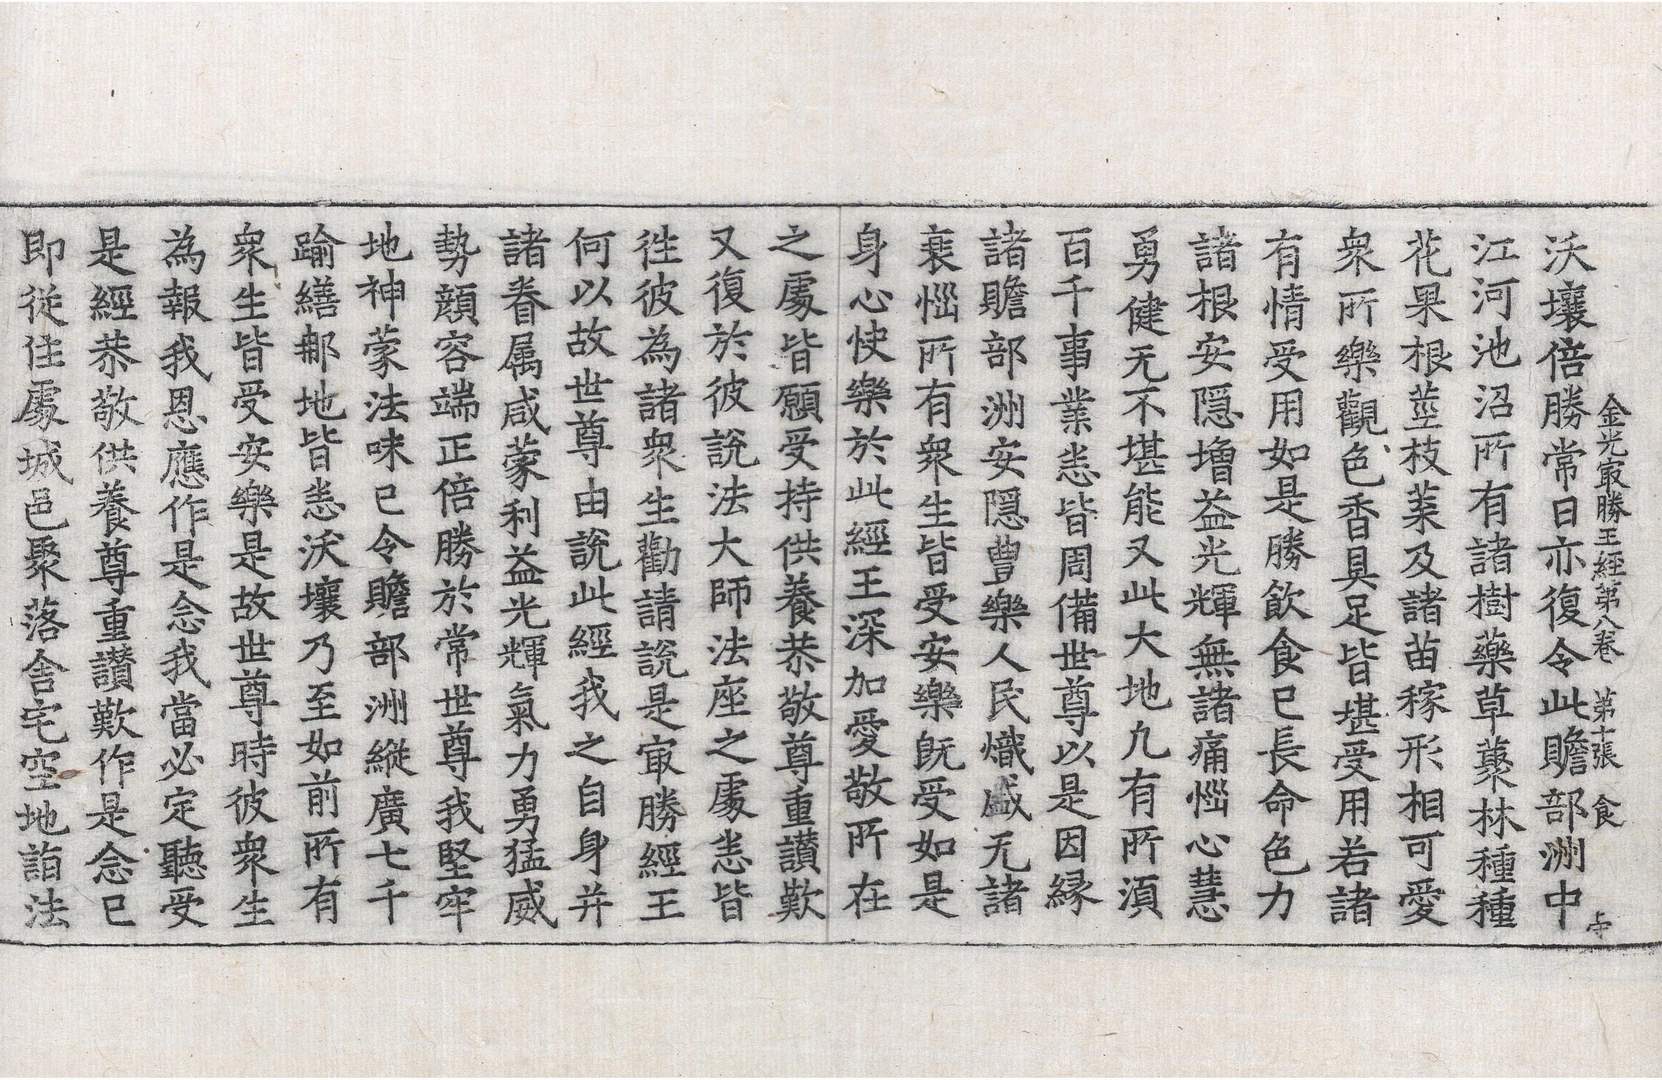 金光冣勝王經第八卷 第十張 食 上寺
沃壤倍勝常日亦復令此贍部洲中
江河池沼所有諸樹藥草藂林種種
花果根莖枝葉及諸苗稼形相可愛
衆所樂觀色香具足皆堪受用若諸
有情受用如是勝飲食已長命色力
諸根安隠增益光輝無諸痛惱心慧
勇健无不堪能又此大地凡有所湏
百千事業悉皆周備世尊以是因縁
諸贍部洲安隠豊樂人民熾盛无諸
衰惱所有衆生皆受安樂旣受如是
身心快樂於此經王深加愛敬所在
之處皆願受持供養恭敬尊重讃歎
又復於彼說法大師法座之處悉皆
徃彼為諸衆生勸請說是冣勝經王
何以故世尊由說此經我之自身并
諸眷属咸蒙利益光輝氣力勇猛威
勢顔容端正倍勝於常世尊我堅牢
地神蒙法味已令贍部洲縱廣七千
踰繕那地皆悉沃壤乃至如前所有
衆生皆受安樂是故世尊時彼衆生
為報我恩應作是念我當必定聽受
是經恭敬供養尊重讃歎作是念已
即從住處城邑聚落舎宅空地詣法